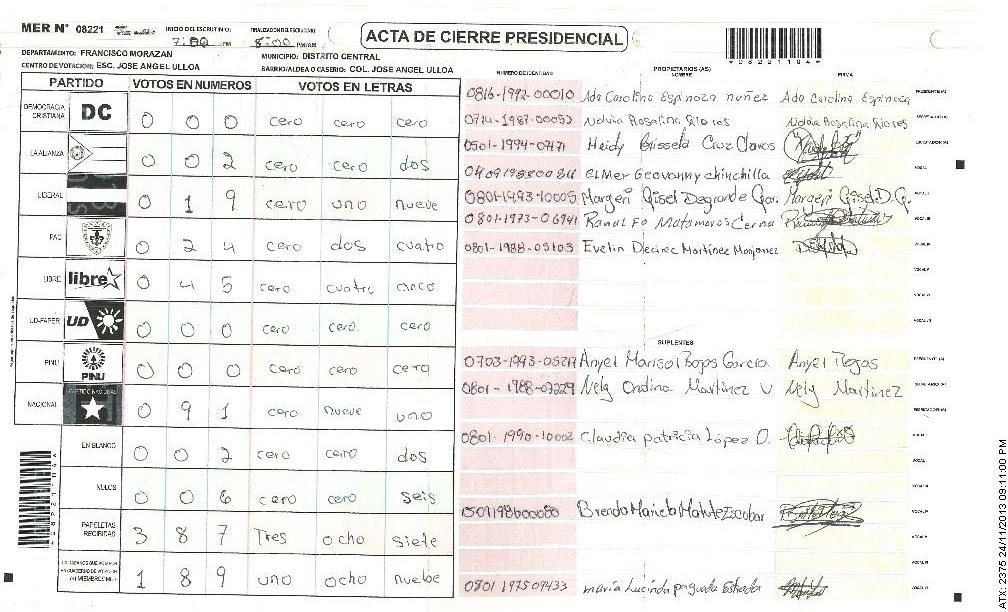 MER N° 08221 INICIO DEL ESCRUTINIO: 7:00 PM FINALIZACION DEL ESCRUTINIO: 8:00 PM/AM
ACTA DE CIERRE PRESIDENCIAL
DEPARTAMENTO: FRANCISCO MORAZAN MUNICIPIO: DISTRITO CENTRAL
CENTRO DE VOTACION: ESC. JOSE ANGEL ULLOA BARRIO/ALDEA O CASERIO: COL. JOSE ANGEL ULLOA
PARTIDO VOTOS EN NUMEROS VOTOS EN LETRAS
DEMOCRACIA CRISTIANA DC 0 0 0 cero cero cero
LA ALIANZA 0 0 2 cero cero dos
LIBERAL 0 1 9 cero uno nueve
PAC 0 2 4 cero dos cuatro
LIBRE libre 0 4 5 cero cuatro cinco
UD-FAPER UD 0 0 0 cero cero cero
PINU PINU 0 0 0 cero cero cero
NACIONAL 0 9 1 cero nueve uno
EN BLANCO 0 0 2 cero cero dos
NULOS 0 0 6 cero cero seis
PAPELETAS RECIBIDAS 3 8 7 Tres ocho siete
1 8 9 uno ocho nuebe
NUMERO DE IDENTIDAD PROPIETARIOS (AS) NOMBRE FIRMA
0816-1992-00010 Ada Carolina Espinoza nuñez Ada Carolina Espinoza PRESIDENTE (A)
Rosalina Rosalina SECRETARIO (A)
0501-1994-07171 Heidy Grissela Cruz Claros ESCRUTADOR (A)
ELMer Geovanny chinchilla VOCAL
Margeri Gisel Margeri Gisel. D.G.
0801-1973-06941 Matamoros Cerna
0801-1988-05103 Evelin Martinez VOCAL IV
VOCAL V
VOCAL VI
VOCAL VII
SUPLENTES
Marisol Garcia PRESIDENTE (A)
Nely Ondina Martinez V Nely Martinez SECRETARIO (A)
ESCRUTADOR (A)
0801-1990-10002 Claudia patricia López O. VOCAL I
VOCAL
VOCAL
Brenda Escobar VOCAL IV
VOCAL V
VOCAL VI
0501 1975 09433 maria Lucinda Estrada VOCAL VII
ATX-2375 24/11/2013 09:11:00 PM